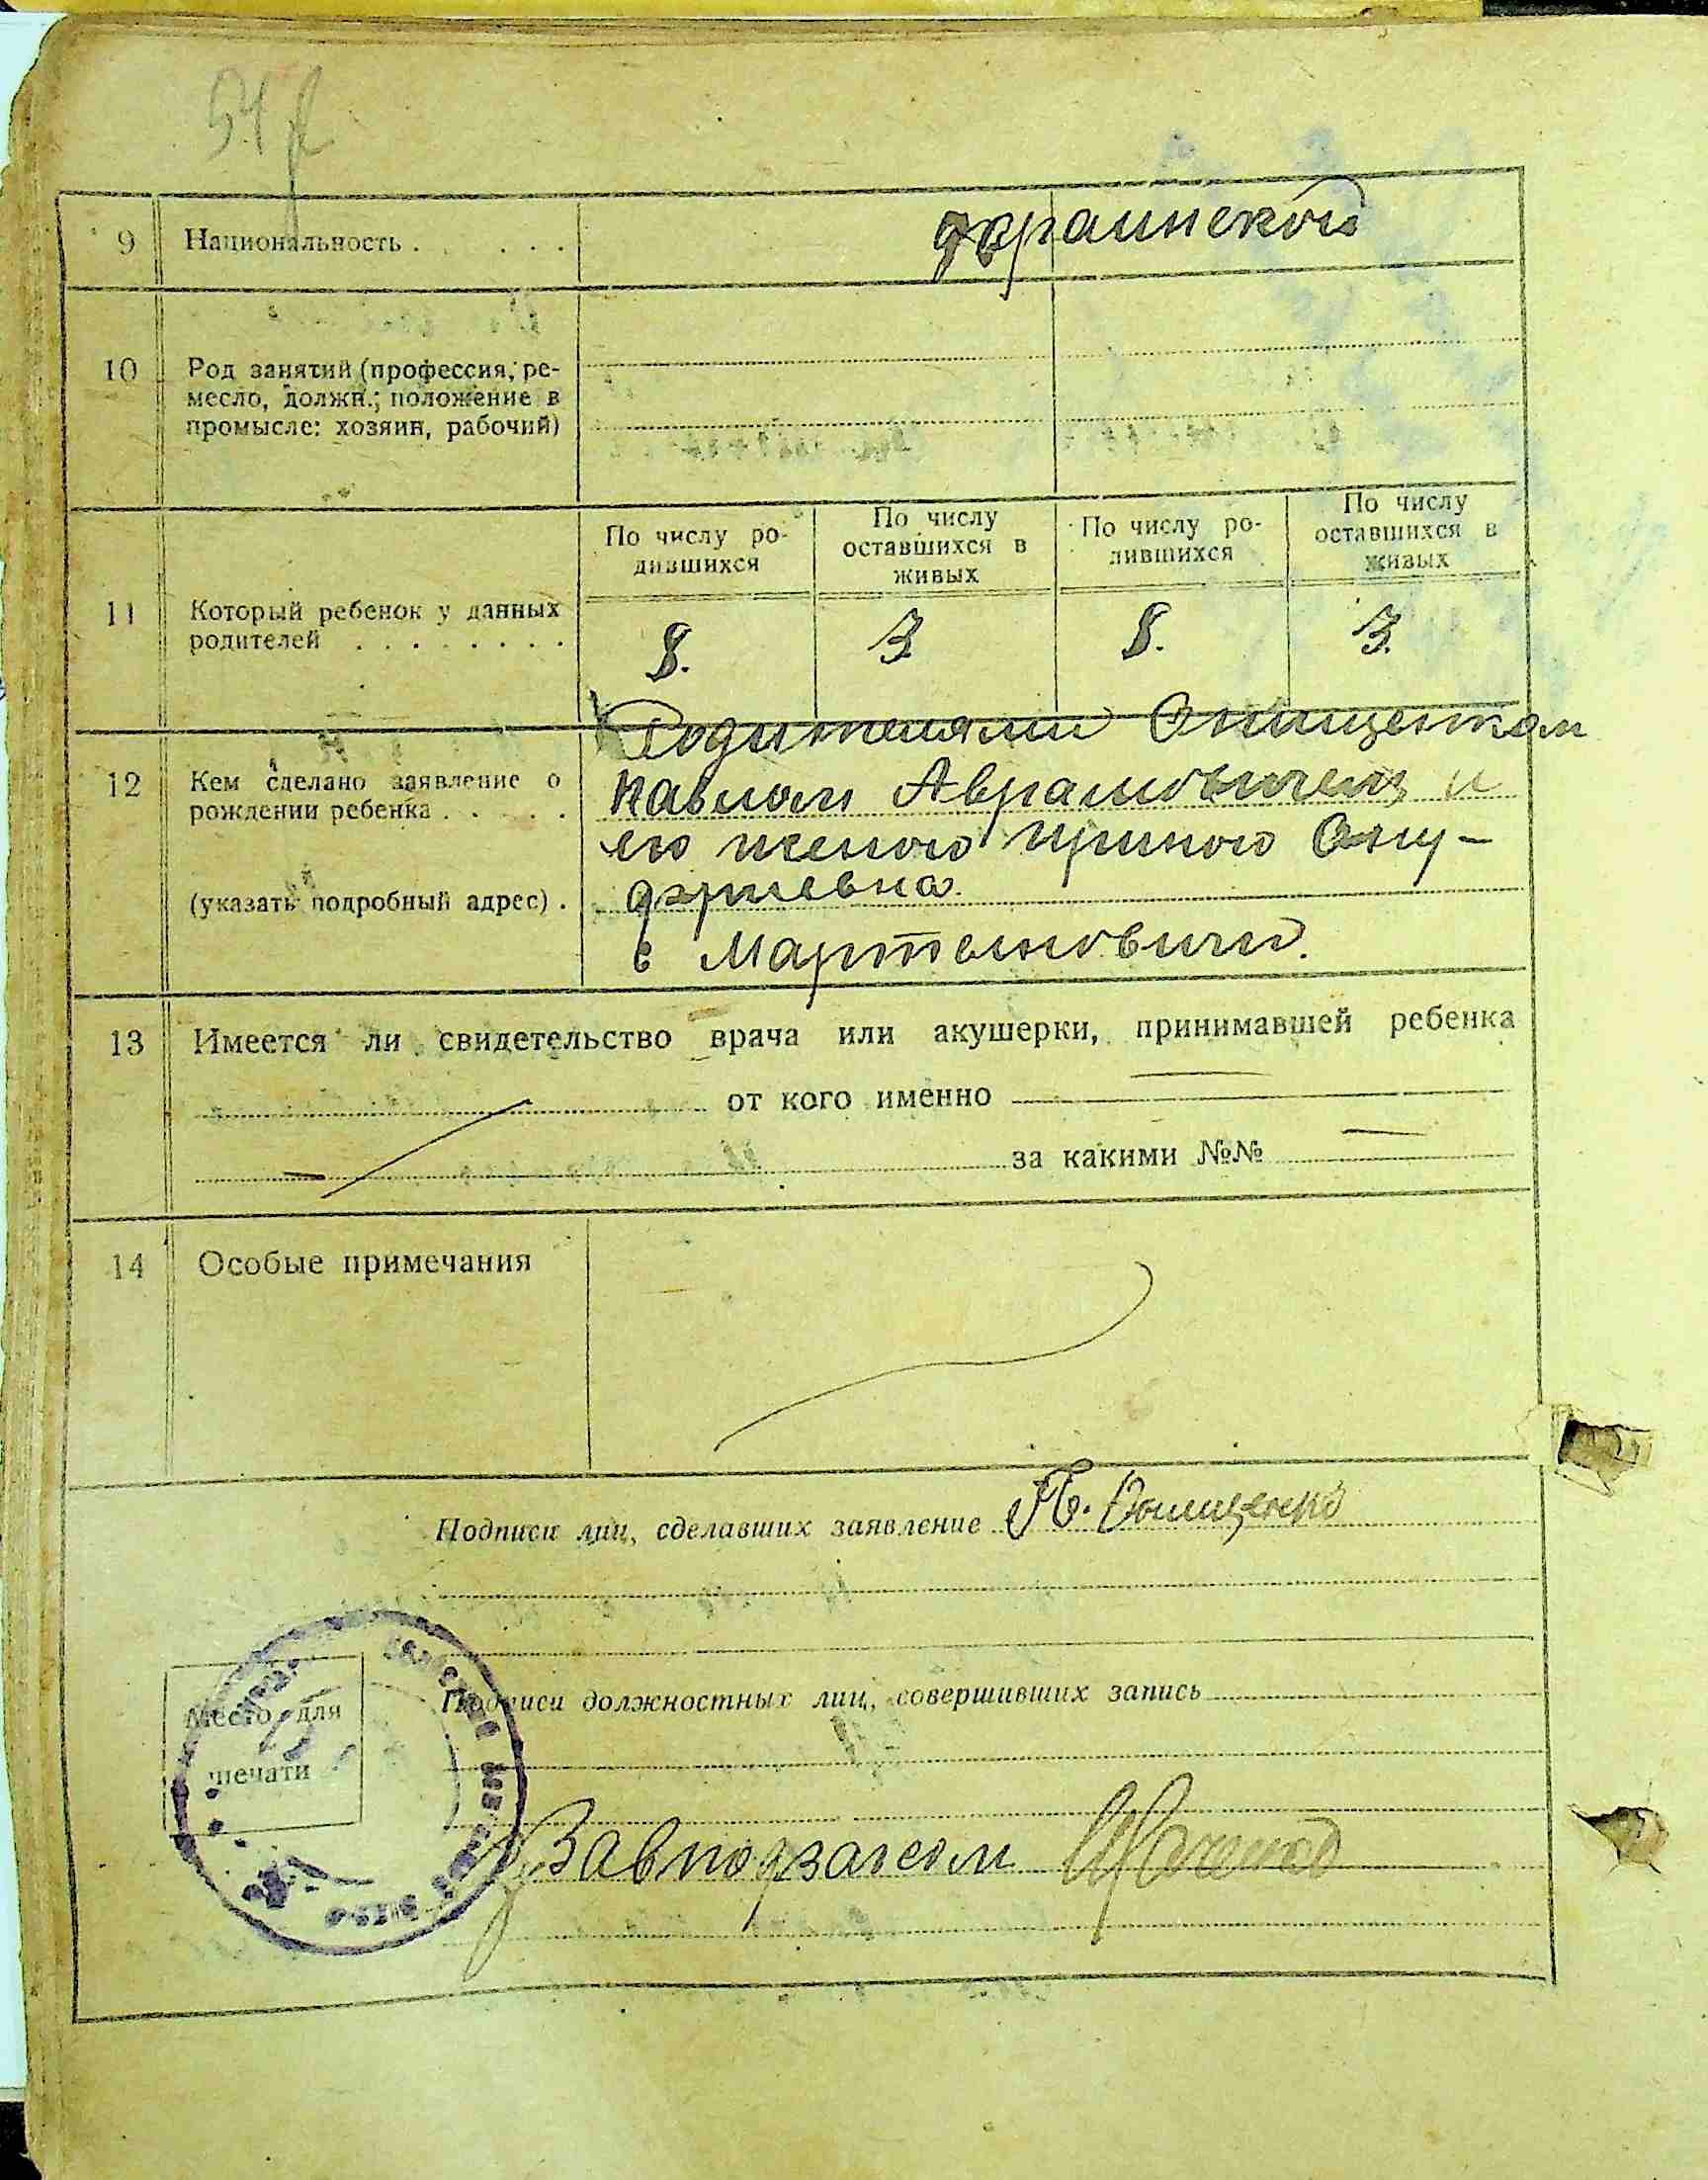 54
9 Национальность . . . . украинской
10 Род занятий (профессия, ре-
месло, должн.; положение в
промысле: хозяин, рабочий)
По числу ро-
дившихся
По числу
оставшихся в
живых
По числу ро-
дившихся
По числу
оставшихся в
живых
11 Который ребенок у данных
родителей . . . . . . . .
8. 3. 8. 3.
12 Кем сделано заявление о
рождении ребенка . . . . .
(указать подробный адрес) .
Родителями Онищенком
Павлом Аврамовичем и
его женою Ириною
с Мартыновичи.
13 Имеется ли свидетельство врача или акушерки, принимавшей ребенка
от кого именно
за какими №№
14 Особые примечания
Подписи лиц, сделавших заявление П. Онищенко
Подписи должностных лиц, совершивших запись
Место для
печати
Завподзагсом